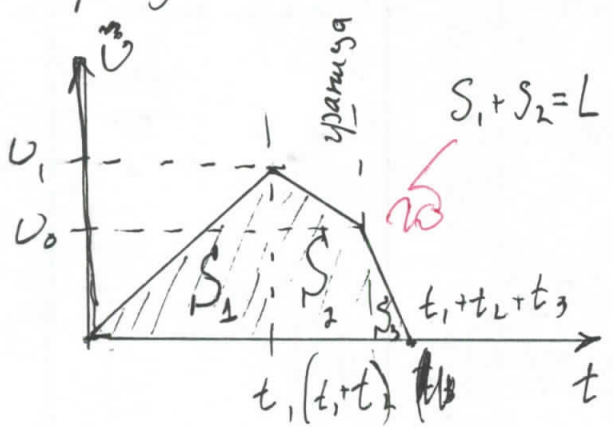 υ
граница
S₁ + S₂ = L
υ₁
υ₀
S₁
S₂
S₃
t₁ + t₂ + t₃
t₁ (t₁+t₂)
t